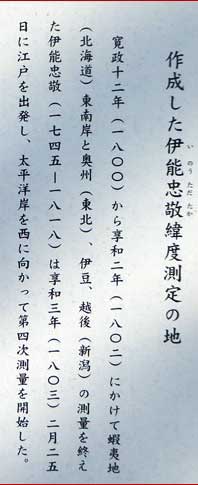 作成した伊能忠敬緯度測定の地
い のう ただ たか
寛政十二年（一八〇〇）から享和二年（一八〇二）にかけて蝦夷地
（北海道）東南岸と奥州（東北）、伊豆、越後（新潟）の測量を終え
た伊能忠敬（一七四五－一八一八）は享和三年（一八〇三）二月二五
日に江戸を出発し、太平洋岸を西に向かって第四次測量を開始した。